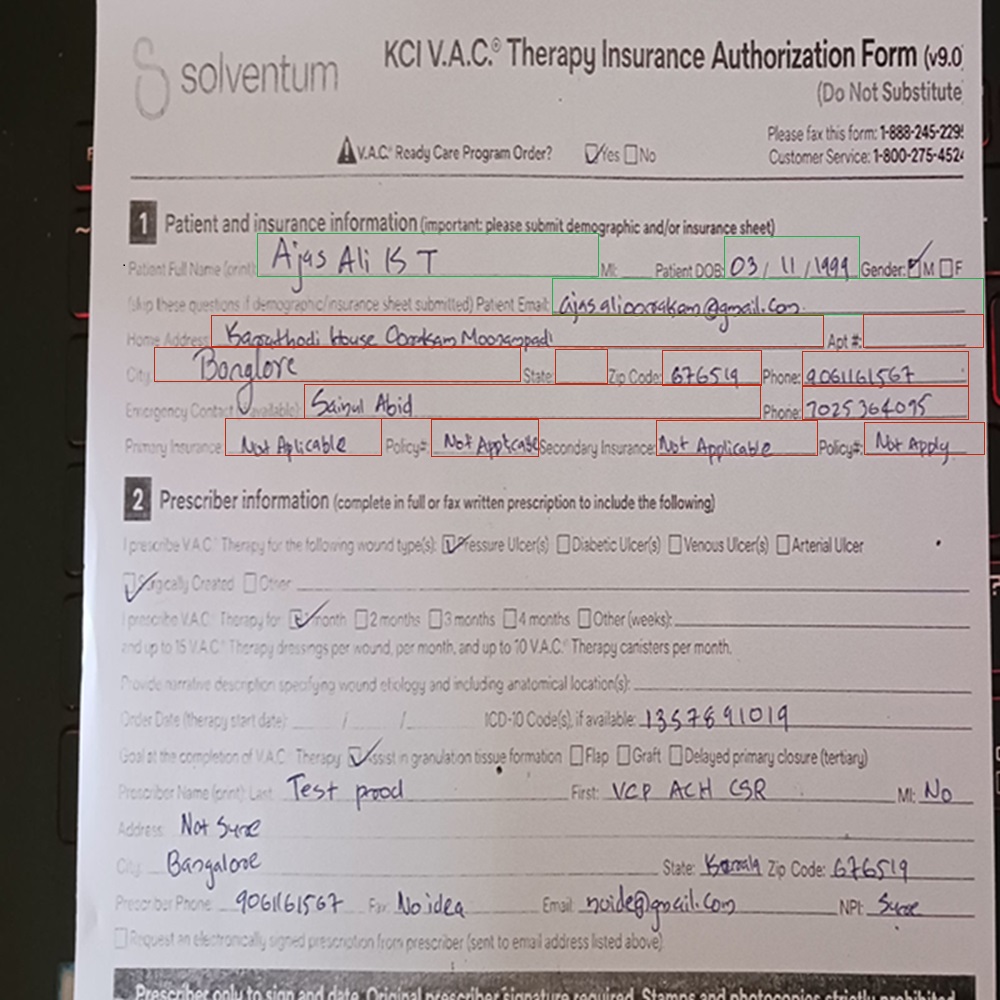 solventum
KCI V.A.C.® Therapy Insurance Authorization Form (v9.0
(Do Not Substitute
Please fax this form: 1-888-245-229
V.A.C.® Ready Care Program Order? Yes No
Customer Service: 1-800-275-452
1 Patient and insurance information (important: please submit demographic and/or insurance sheet)
Patient Full Name (print): Ajas Ali K T MI: Patient DOB: 03 / 11 / 1999 Gender: M F
(skip these questions if demographic/insurance sheet submitted) Patient Email: @gmail.com
Home Address: House Apt #:
City: Banglore State: Zip Code: 676519 Phone: 9061161567
Emergency Contact (if available): Sainul Abid Phone: 7025364095
Primary Insurance: Not Aplicable Policy#: Not Applicable Secondary Insurance: Not Applicable Policy#: Not Apply
2 Prescriber information (complete in full or fax written prescription to include the following)
I prescribe V.A.C.® Therapy for the following wound type(s): Pressure Ulcer(s) Diabetic Ulcer(s) Venous Ulcer(s) Arterial Ulcer
Surgically Created Other
I prescribe V.A.C.® Therapy for: month 2 months 3 months 4 months Other (weeks):
and up to 15 V.A.C.® Therapy dressings per wound, per month, and up to 10 V.A.C.® Therapy canisters per month.
Provide narrative description specifying wound etiology and including anatomical location(s):
Order Date (therapy start date): / / ICD-10 Code(s), if available: 1357891019
Goal at the completion of V.A.C.® Therapy Assist in granulation tissue formation Flap Graft Delayed primary closure (tertiary)
Prescriber Name (print): Last: Test prod First: VCP ACH CSR MI: No
Address: Not Sure
City: Bangalore State: Zip Code: 676519
Prescriber Phone: 9061161567 Fax: No idea Email: noide@gmail.com NPI: Sure
Request an electronically signed prescription from prescriber (sent to email address listed above)
Prescriber only to sign and date. Original prescriber signature required. Stamps and photocopies strictly prohibited